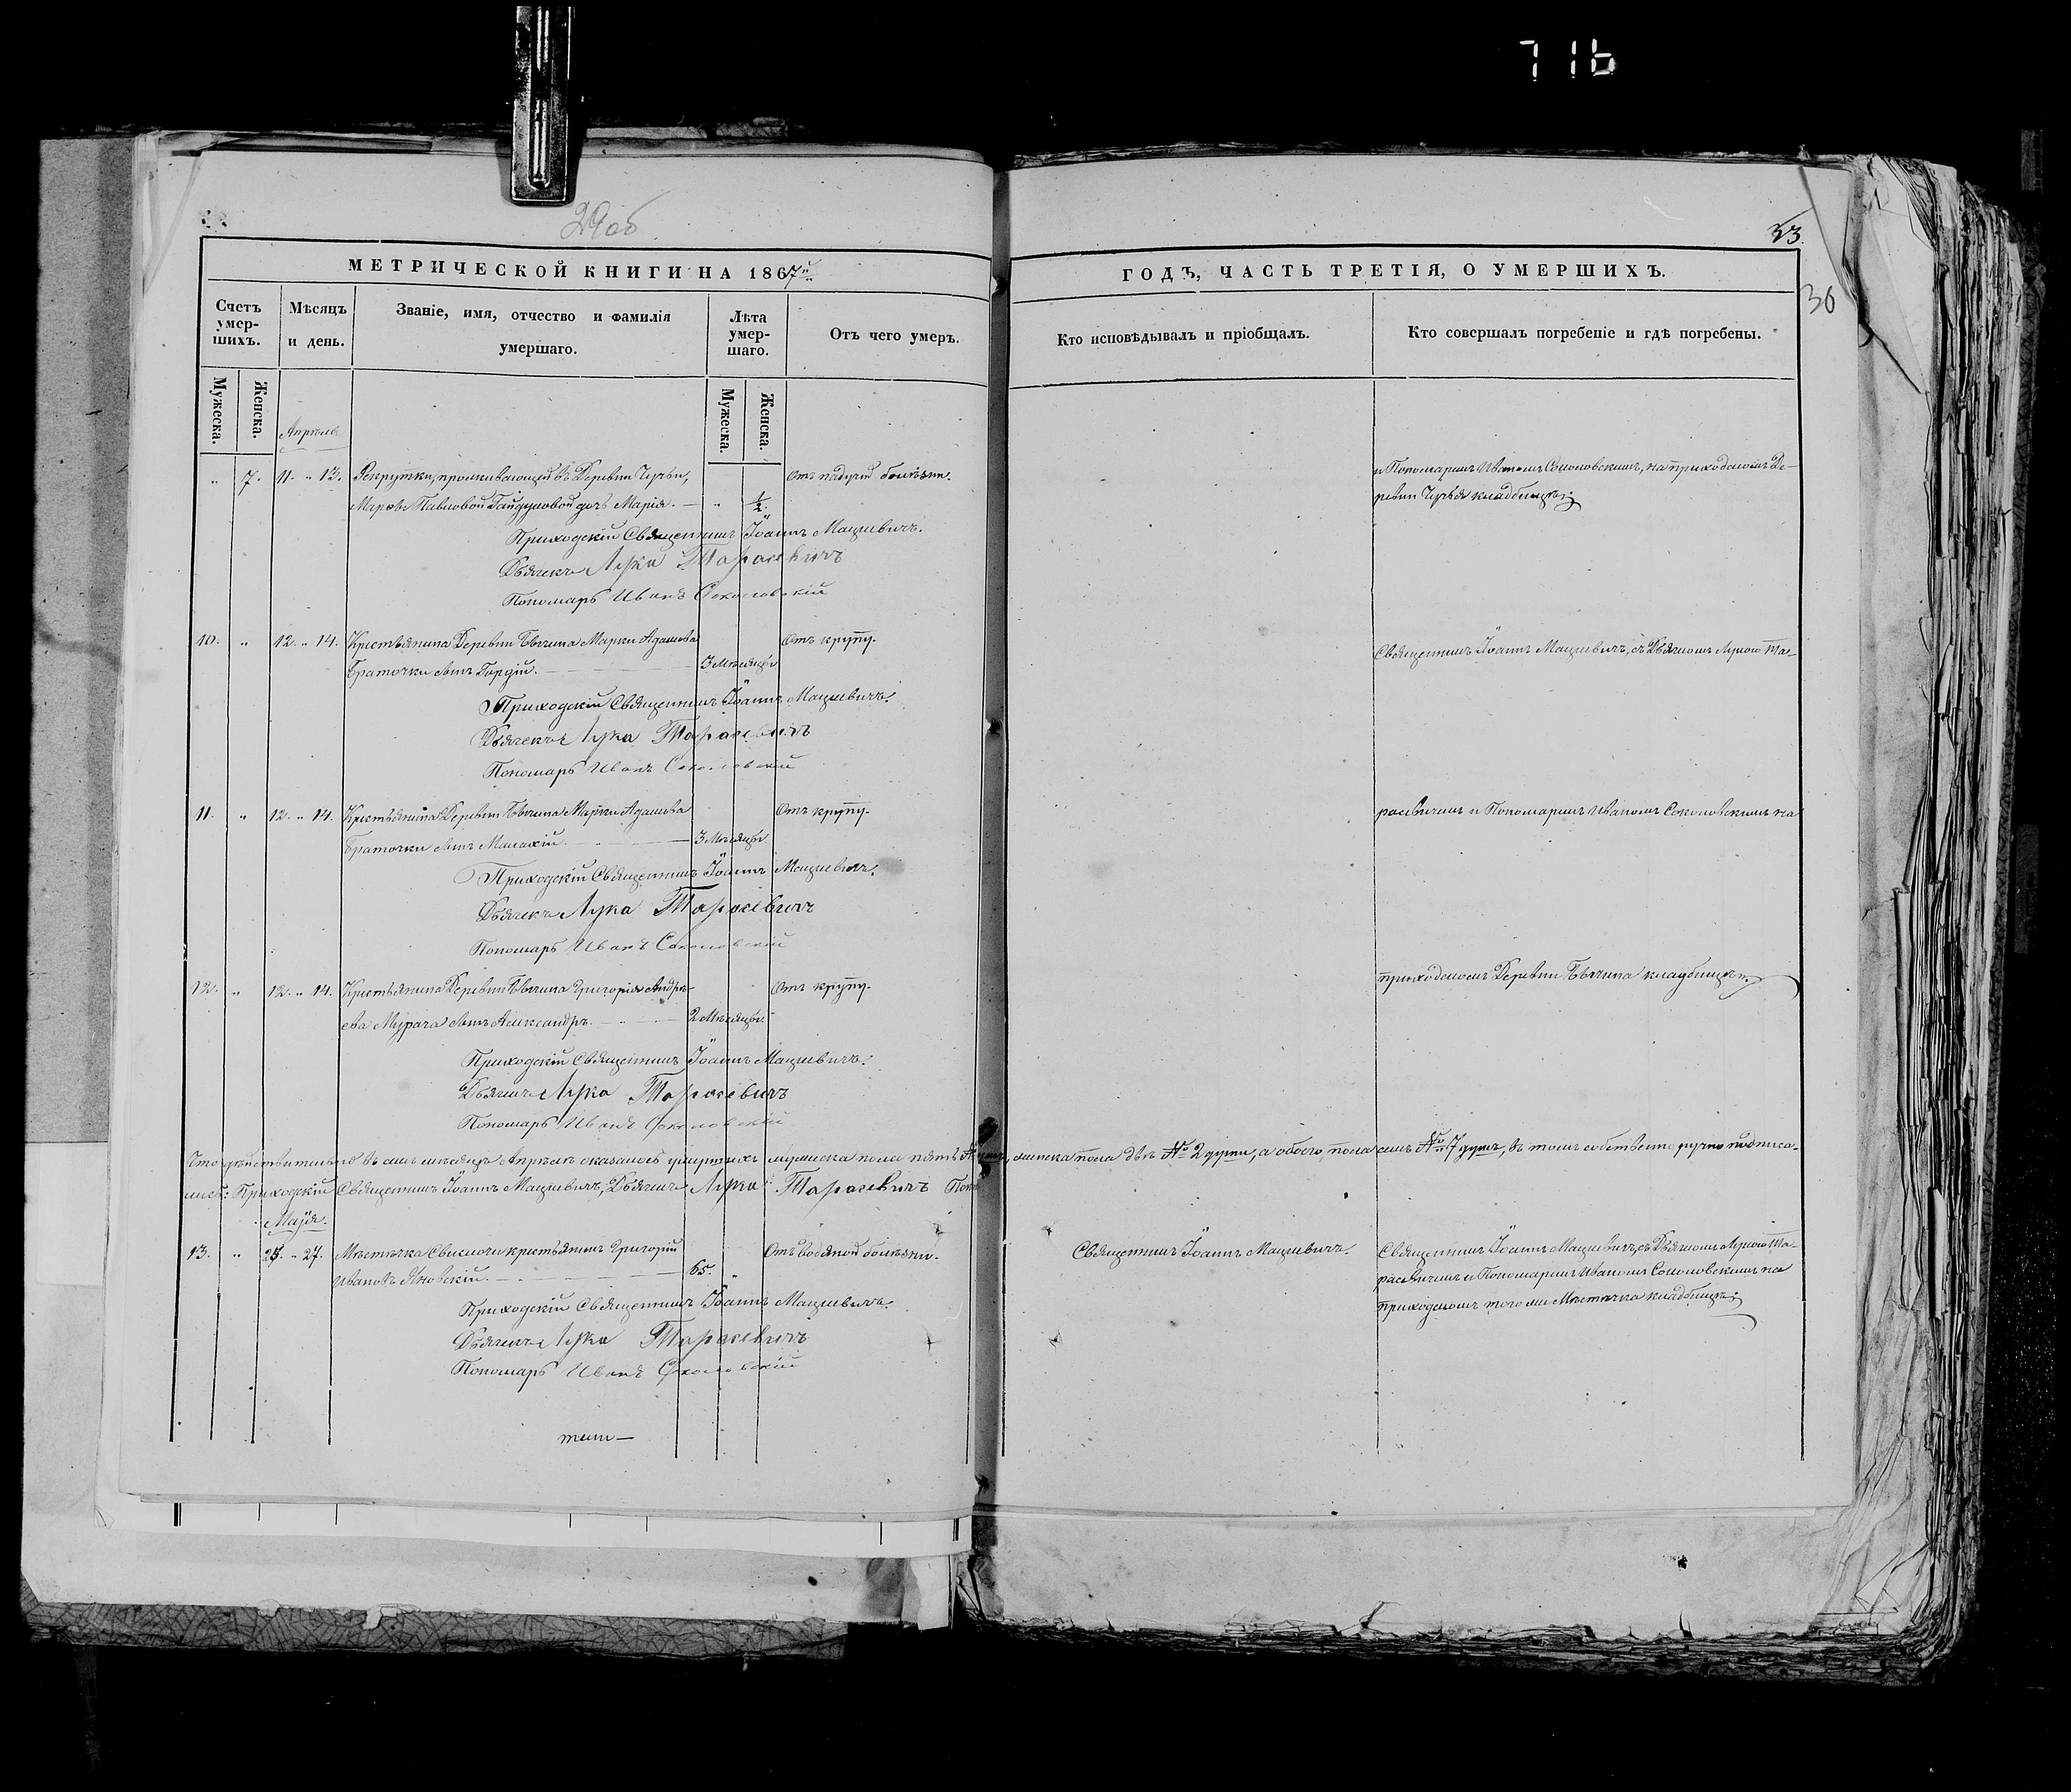 716
29об
33.
30
МЕТРИЧЕСКОЙ КНИГИ НА 1867й
ГОДЪ, ЧАСТЬ ТРЕТІЯ, О УМЕРШИХЪ.
Счетъ умер-шихъ.
Мѣсяцъ и день.
Званіе, имя, отчество и фамилія
умершаго.
Лѣта умер-шаго.
Отъ чего умеръ.
Кто исповѣдывалъ и пріобщалъ.
Кто совершалъ погребеніе и гдѣ погребены.
Мужеска.
Женска.
Мужеска.
Женска.
Апрѣль
„ 7. 11. „ 13. Рекрутки, проживающей въ Деревни
Павловой дочь Марія. — „ ½.
Отъ падучей болѣзни.
и Пономаремъ Иваномъ Соколовскимъ, на приходскомъ Де-
ревни кладбищѣ;
Приходскій Священникъ Іоаннъ Мацкевичъ.
Дьячекъ Лука Тарасевичъ
Пономарь Иванъ Соколовскій
10. „ 12. „ 14. Крестьянина Деревни Марки Адамова
Браточки сынъ Гордій. — 3 Мѣсяцы
Отъ крупу.
Священникъ Іоаннъ Мацкевичъ, съ Дьячкомъ Лукою Та-
Приходскій Священникъ Іоаннъ Мацкевичъ.
Дьячекъ Лука Тарасевичъ
Пономарь Иванъ Соколовскій
11. „ 12. „ 14. Крестьянина Деревни Марки Адамова
Браточки сынъ Малахій. — 3 Мѣсяцы
Отъ крупу.
расевичемъ и Пономаремъ Иваномъ Соколовскимъ на
Приходскій Священникъ Іоаннъ Мацкевичъ.
Дьячекъ Лука Тарасевичъ
Пономарь Иванъ Соколовскій
12. „ 12. „ 14. Крестьянина Деревни Григорія Андре-
ева Мурача сынъ Александръ. — 2 Мѣсяцы
Отъ крупу.
приходскомъ Деревни кладбищѣ;
Приходскій Священникъ Іоаннъ Мацкевичъ.
Дьячекъ Лука Тарасевичъ
Пономарь Иванъ Соколовскій
Что дѣйствительно въ семъ мѣсяцѣ Апрѣлѣ оказалось умершихъ мужеска пола пять женска пола двѣ № 2 души, а обоего пола семь № 7 душъ, въ томъ собственноручно подписа-
лись: Приходскій Священникъ Іоаннъ Мацкевичъ, Дьячекъ Лука Тарасевичъ
Маія.
13. „ 25. „ 27. Мѣстечка Свислочи крестьянинъ Григорій
Ивановъ Яновскій. — 65. „
Отъ водяной болѣзни.
Священникъ Іоаннъ Мацкевичъ.
Священникъ Іоаннъ Мацкевичъ, съ Дьячкомъ Лукою Та-
расевичемъ и Пономаремъ Иваномъ Соколовскимъ на
приходскомъ того же Мѣстечка кладбищѣ;
Приходскій Священникъ Іоаннъ Мацкевичъ.
Дьячекъ Лука Тарасевичъ
Пономарь Иванъ Соколовскій